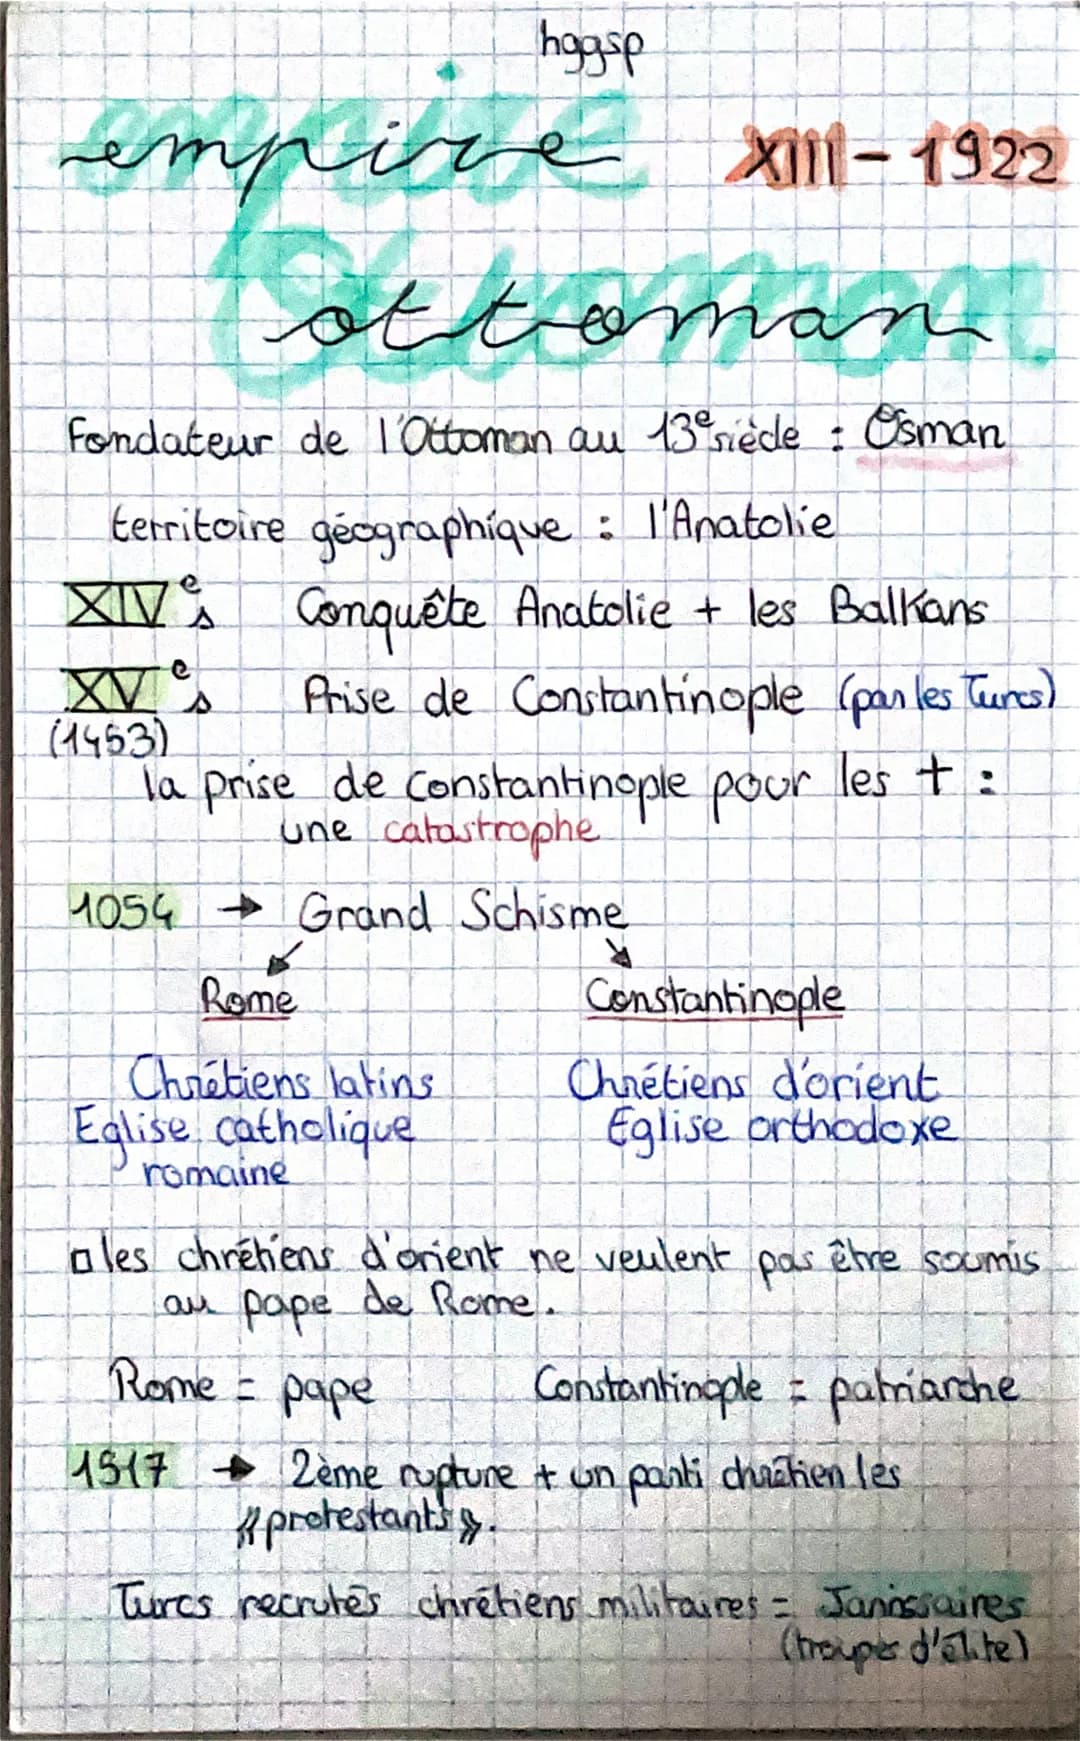 hggsp
empire XIII - 1922
ottoman
Fondateur de l'Ottoman au 13e siècle : Osman
territoire géographique : l'Anatolie
XIVe s Conquête Anatolie + les Balkans
XVe s Prise de Constantinople (par les Turcs)
(1453)
la prise de constantinople pour les + :
une catastrophe
1054 → Grand Schisme
Rome Constantinople
Chrétiens latins Chrétiens d'orient
Eglise catholique Eglise orthodoxe
romaine
▫ les chrétiens d'orient ne veulent pas être soumis
au pape de Rome.
Rome = pape Constantinople = patriarche
1517 → 2ème rupture + un parti chrétien les
«protestants».
Turcs recrutés chrétiens militaires = Janissaires
(troupes d'élite)